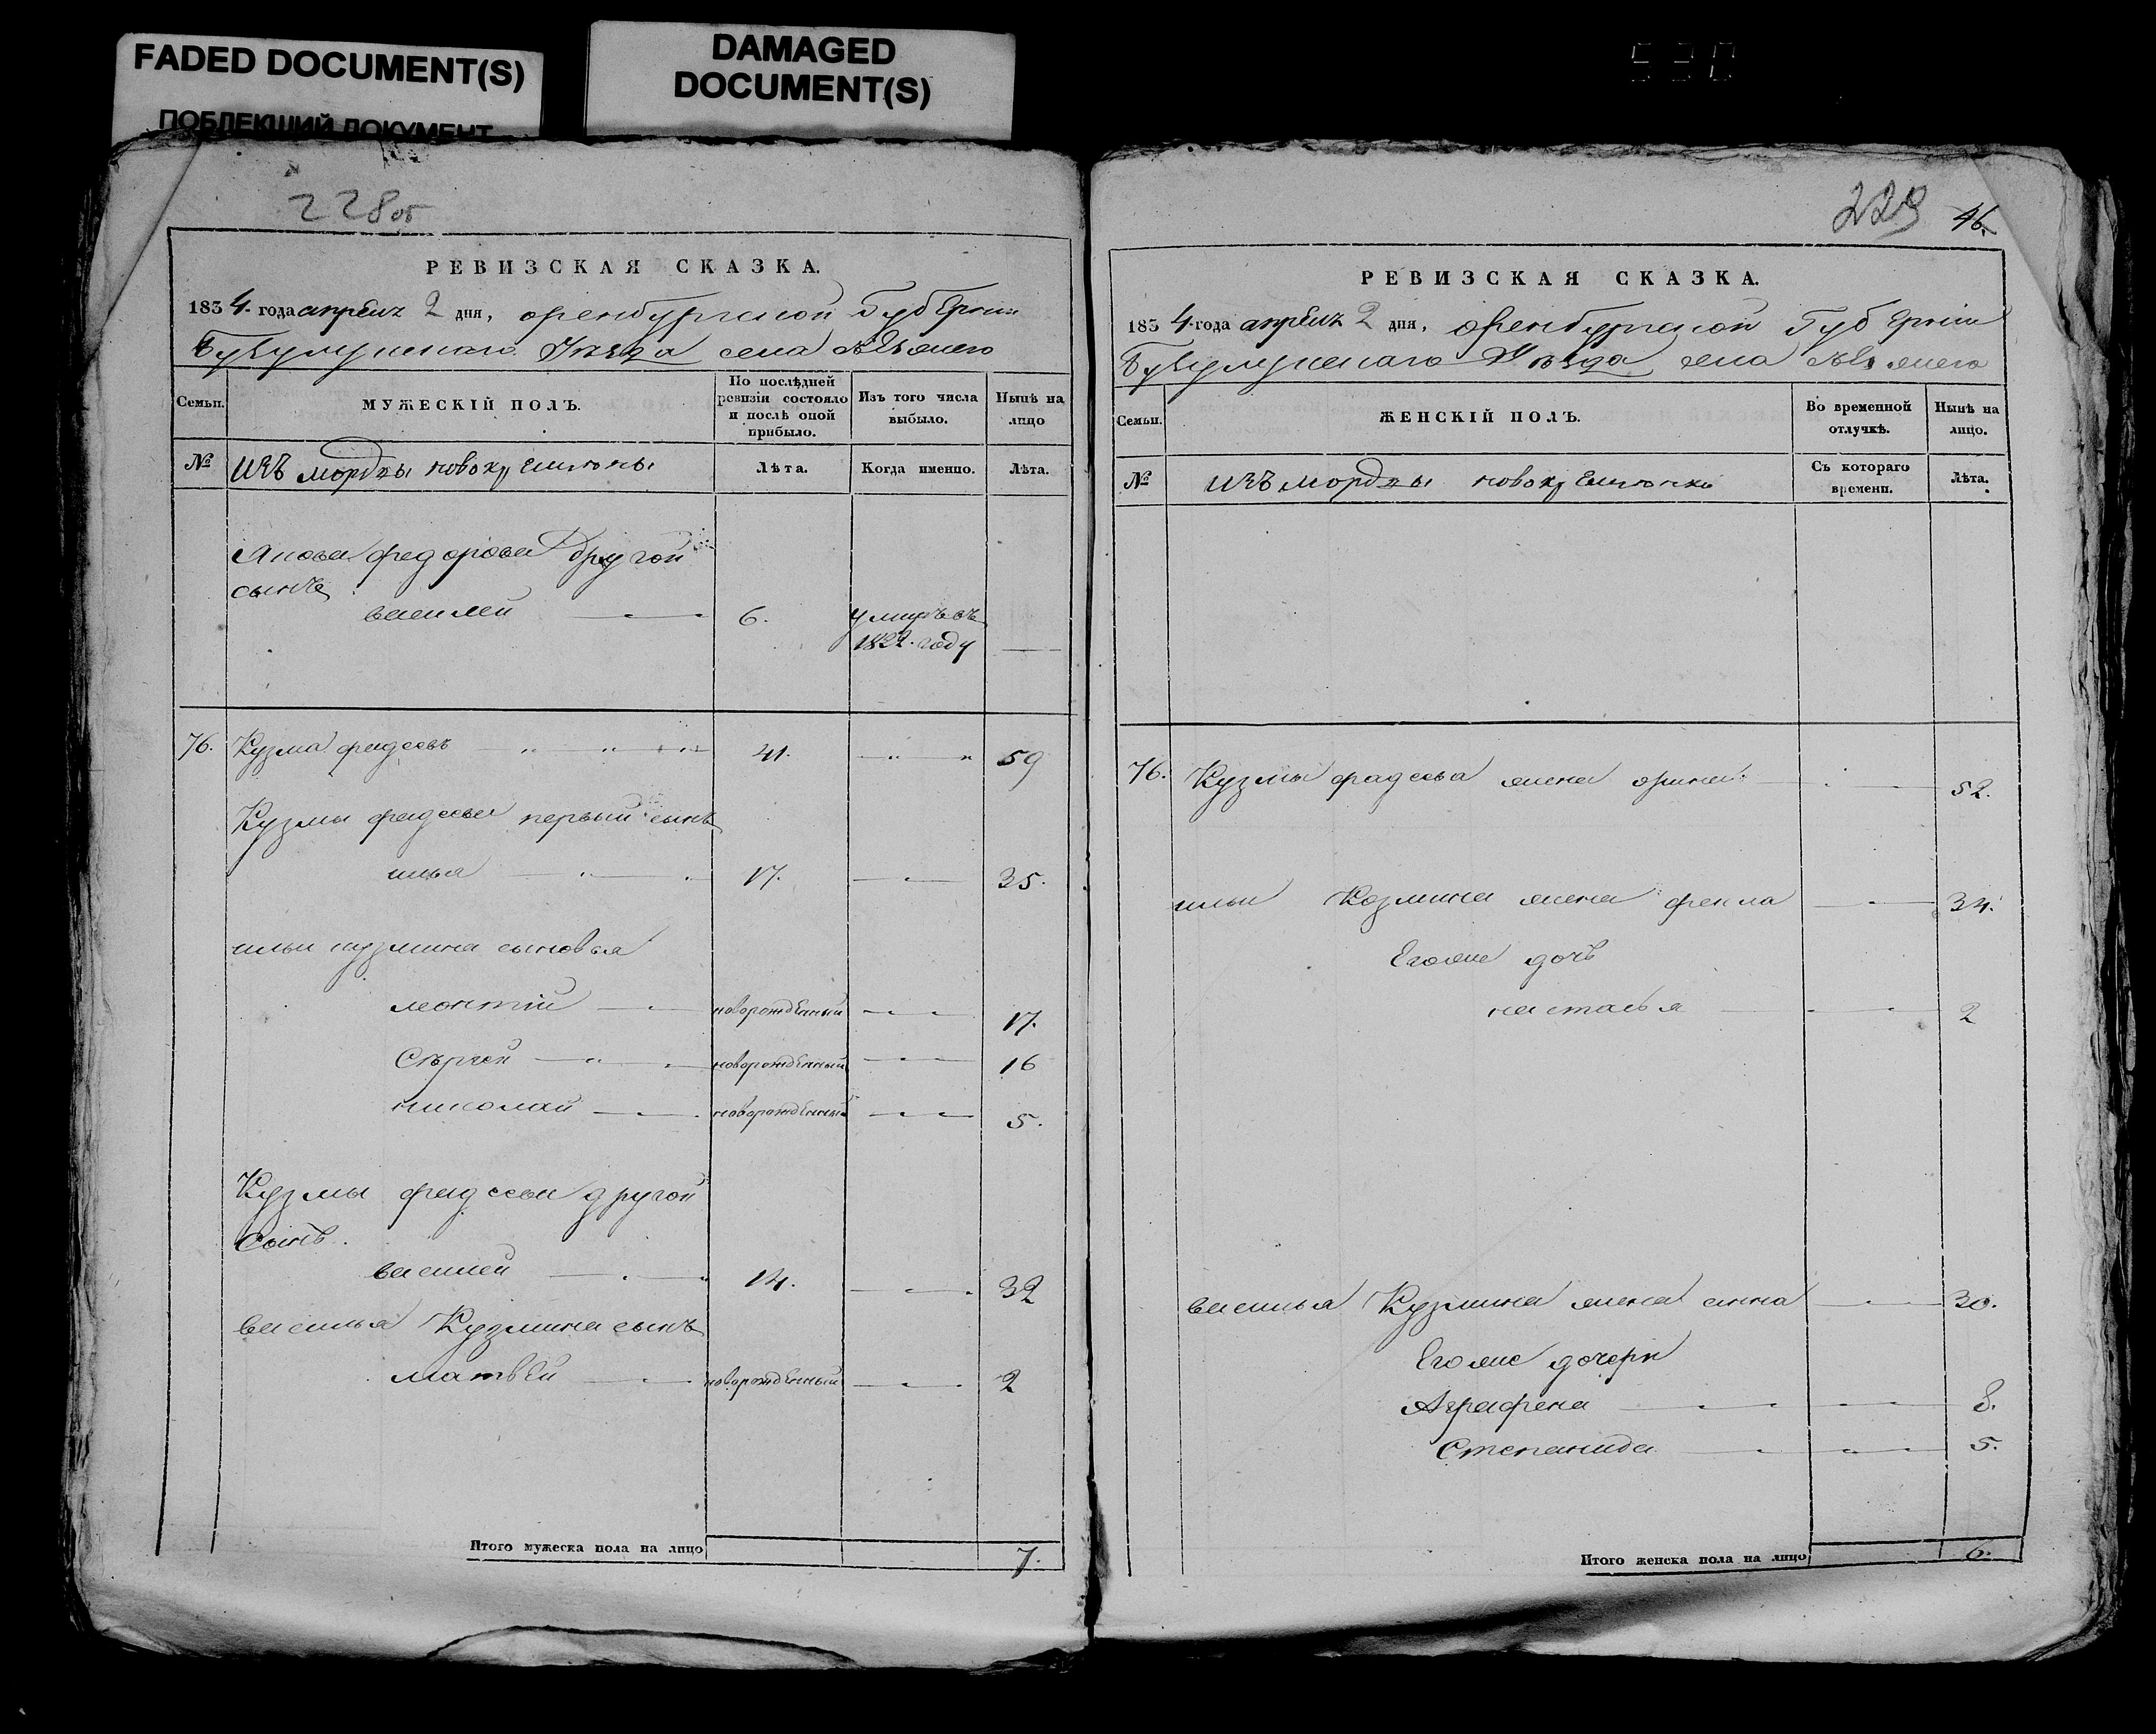 FADED DOCUMENT(S)
ПОБЛЕКШИЙ ДОКУМЕНТ
DAMAGED
DOCUMENT(S)
228 об
РЕВИЗСКАЯ СКАЗКА.
1834. года апреля 2 дня, оренбургской Губернии
Бугульминскаго Уезда села
Семьи.
МУЖЕСКІЙ ПОЛЪ.
По послѣдней ревизіи состояло и послѣ оной прибыло.
Изъ того числа выбыло.
Нынѣ на лицо
№
изъ мордвы новокрещены
Лѣта.
Когда именно.
Лѣта.
федорова другой
сынъ
василей 6. умиръ въ
1822. году
76. Кузма фадеевъ 41. 59
Кузмы фадеева первый сынъ
илья 17. 35.
ильи кузмина сыновья
леонтій новорожденный 17.
Сергей новорожденный 16
николай новорожденный 5.
Кузмы фадеева другой
сынъ.
василей 14. 32
василья Кузмина сынъ
матвей новорожденный 2
Итого мужеска пола на лицо 7.
229 46.
РЕВИЗСКАЯ СКАЗКА.
1834. года апреля 2 дня, оренбургской Губернии
Бугульминскаго Уезда села
Семьи.
ЖЕНСКІЙ ПОЛЪ.
Во временной отлучкѣ.
Нынѣ на лицо.
№
изъ мордвы новокрещенки
Съ котораго времени.
Лѣта.
76. Кузмы фадеева жена орина 52.
ильи Козмина жена фекла 34.
Егоже дочь
наталья 2
василья Кузмина жена анна 30.
Егоже дочери
Аграфена 8.
Степанида 5.
Итого женска пола на лицо 6.